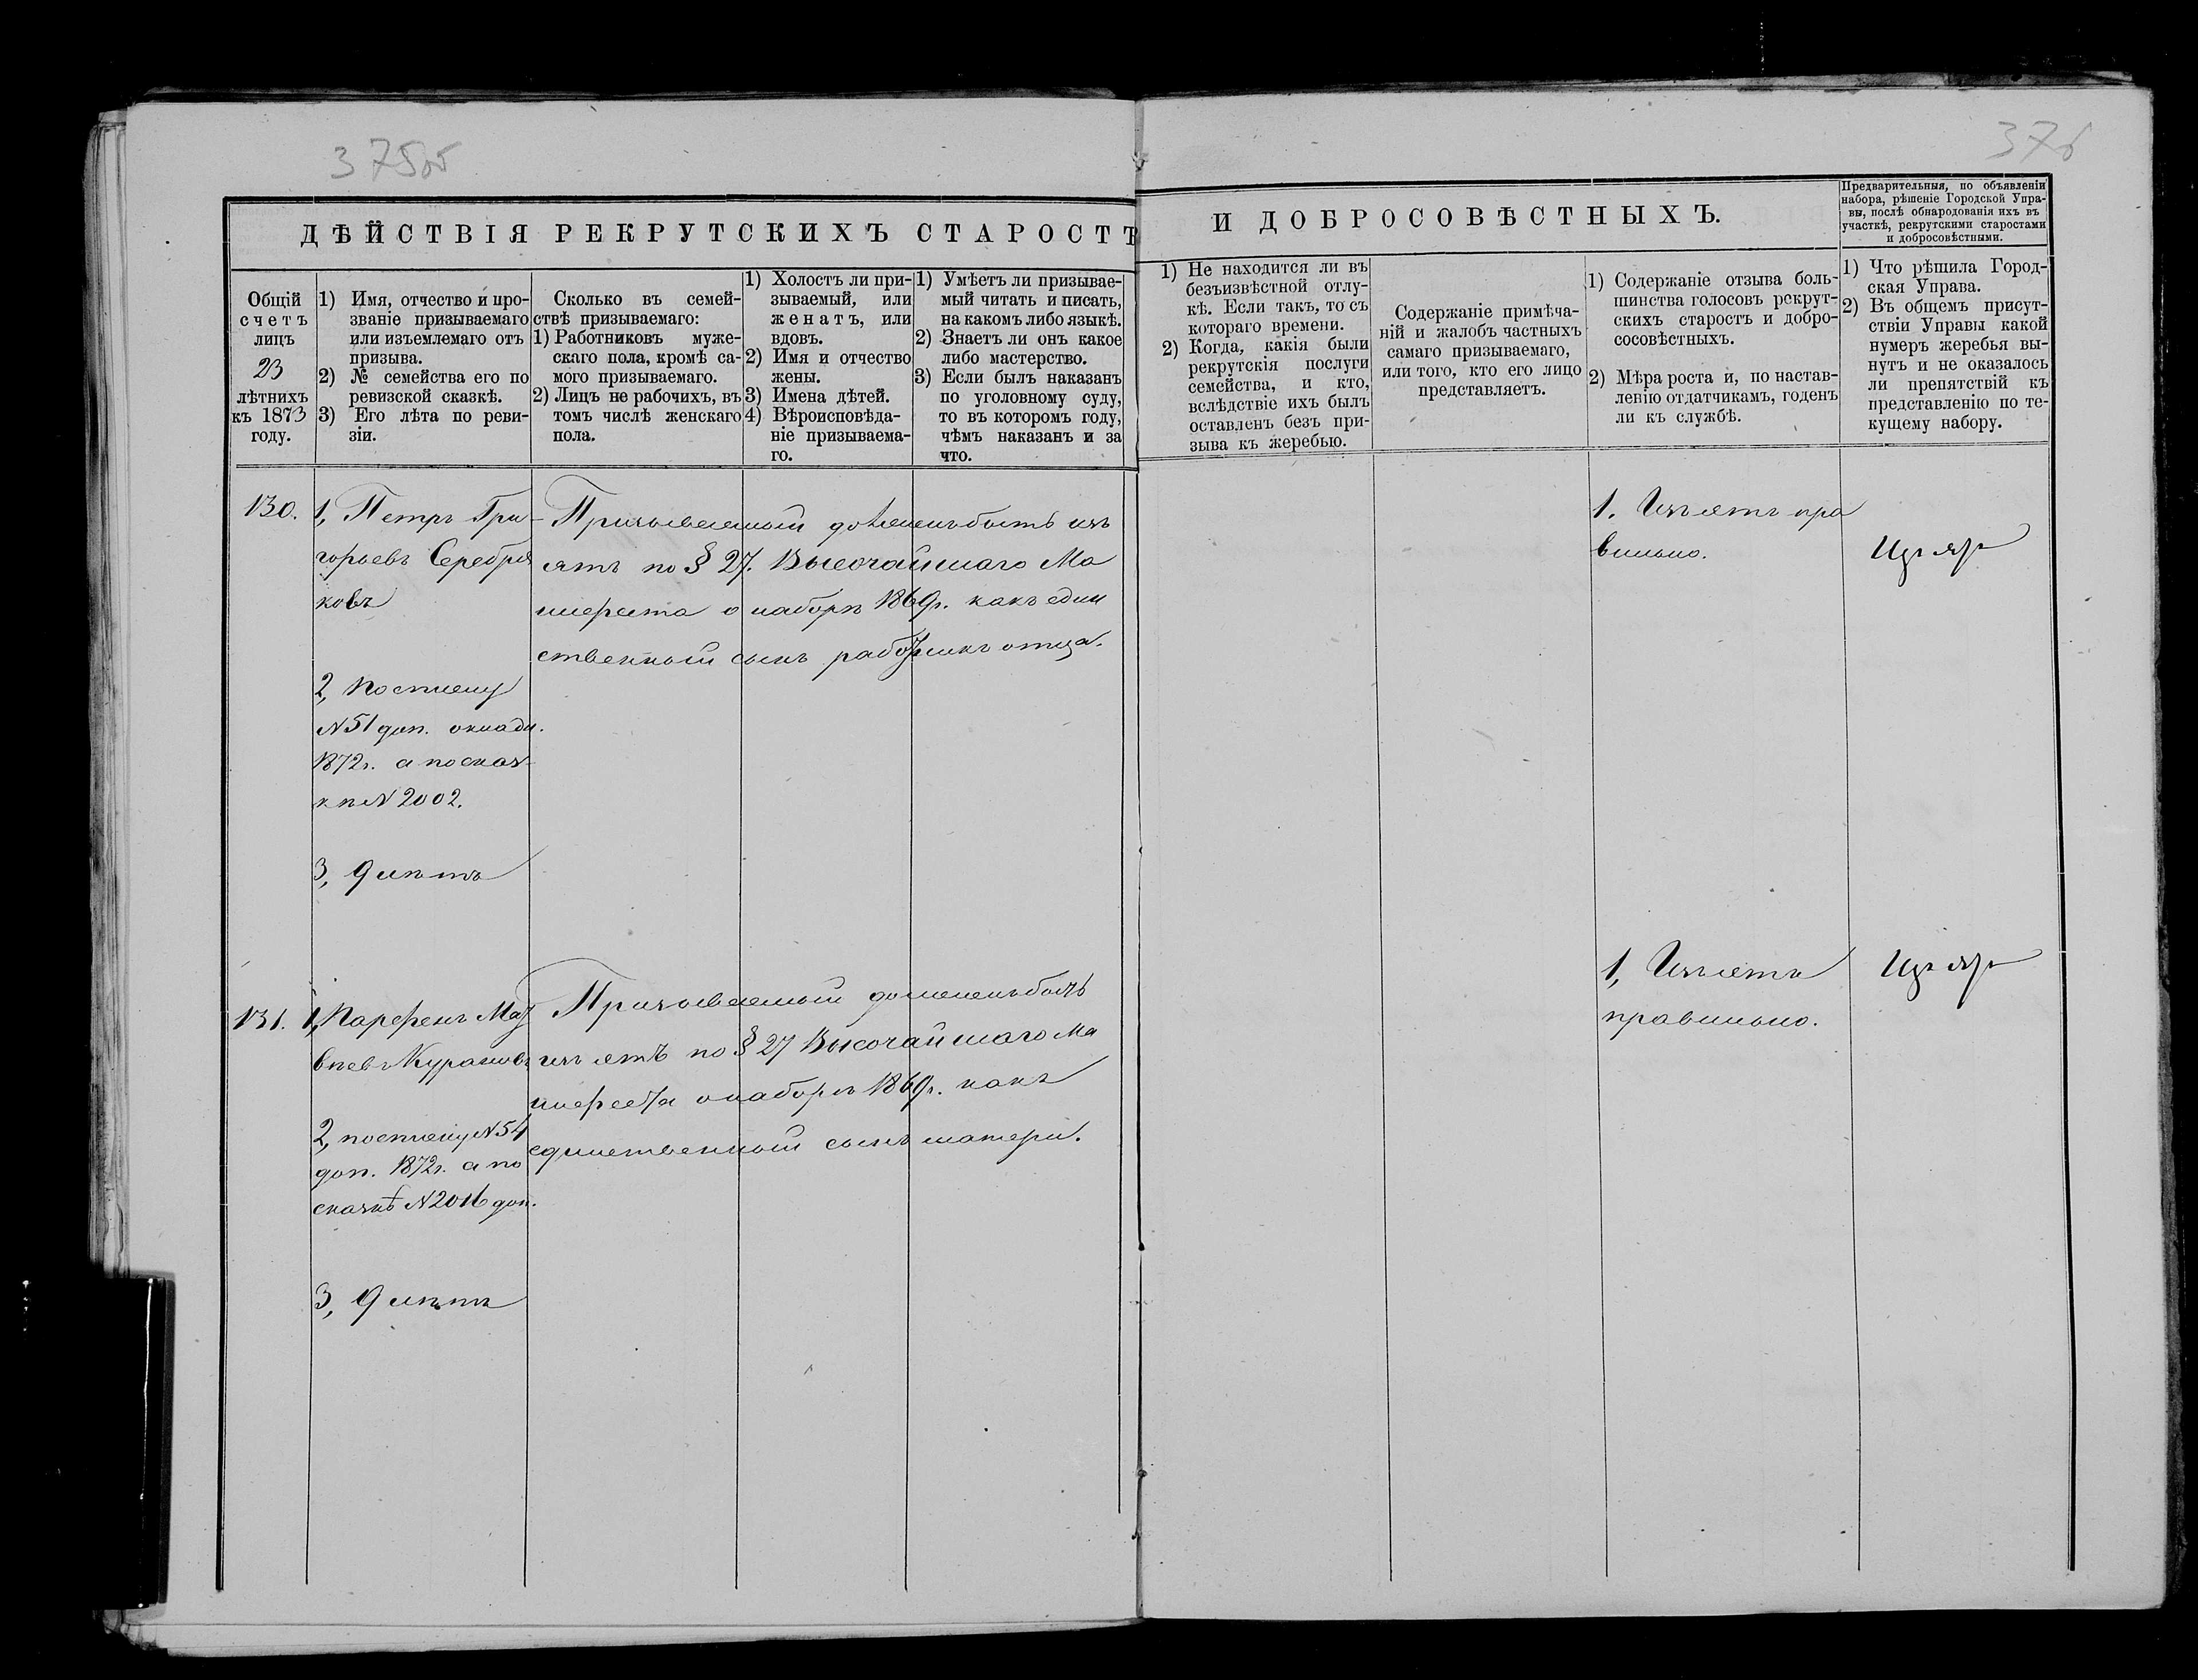 375об
376
ДѢЙСТВІЯ РЕКРУТСКИХЪ СТАРОСТЪ
И ДОБРОСОВѢСТНЫХЪ.
Предварительныя, по объявленіи
набора, рѣшеніе Городской Упра-
вы, послѣ обнародованія ихъ въ
участкѣ, рекрутскими старостами
и добросовѣстными.
Общій
счетъ
лицъ
23
лѣтнихъ
къ 1873
году.
1) Имя, отчество и про-
званіе призываемаго
или изъемлемаго отъ
призыва.
2) № семейства его по
ревизской сказкѣ.
3) Его лѣта по реви-
зіи.
Сколько въ семей-
ствѣ призываемаго:
1) Работниковъ муже-
скаго пола, кромѣ са-
мого призываемаго.
2) Лицъ не рабочихъ, въ
томъ числѣ женскаго
пола.
1) Холостъ ли при-
зываемый, или
женатъ, или
вдовъ.
2) Имя и отчество
жены.
3) Имена дѣтей.
4) Вѣроисповѣда-
ніе призываема-
го.
1) Умѣетъ ли призывае-
мый читать и писать,
на какомъ либо языкѣ.
2) Знаетъ ли онъ какое
либо мастерство.
3) Если былъ наказанъ
по уголовному суду,
то въ которомъ году,
чѣмъ наказанъ и за
что.
1) Не находится ли въ
безъизвѣстной отлу-
кѣ. Если такъ, то съ
котораго времени.
2) Когда, какія были
рекрутскія послуги
семейства, и кто,
вслѣдствіе ихъ былъ
оставленъ безъ при-
зыва къ жеребью.
Содержаніе примѣча-
ній и жалобъ частныхъ
самаго призываемаго,
или того, кто его лицо
представляетъ.
1) Содержаніе отзыва боль-
шинства голосовъ рекрут-
скихъ старостъ и добро-
сосовѣстныхъ.
2) Мѣра роста и, по настав-
ленію отдатчикамъ, годенъ
ли къ службѣ.
1) Что рѣшила Город-
ская Управа.
2) Въ общемъ присут-
ствіи Управы какой
нумеръ жеребья вы-
нутъ и не оказалось
ли препятствій къ
представленію по те-
кущему набору.
130.
1, Петръ Гри-
горьевъ Серебря
ковъ
2, По
N 51 доп.
1872г. а по сказ-
кѣ N 2002.
3, 9 лѣтъ
Призываемый долженъ быть изъ
ятъ по § 27. Высочайшаго Ма
нифеста о наборѣ 1869г. какъ един
ственный сынъ работникъ отца.
1. Изъятъ пра
вильно.
Изъятъ
131.
1, Парфенъ Мат
вѣевъ
2, по N 54
доп. 1872г. а по
сказкѣ N 2016 доп.
3, 9 лѣтъ
Призываемый долженъ быть
изъятъ по § 27 Высочайшаго Ма
нифеста о наборѣ 1869г. какъ
единственный сынъ матери.
1, Изъятъ
правильно.
Изъятъ